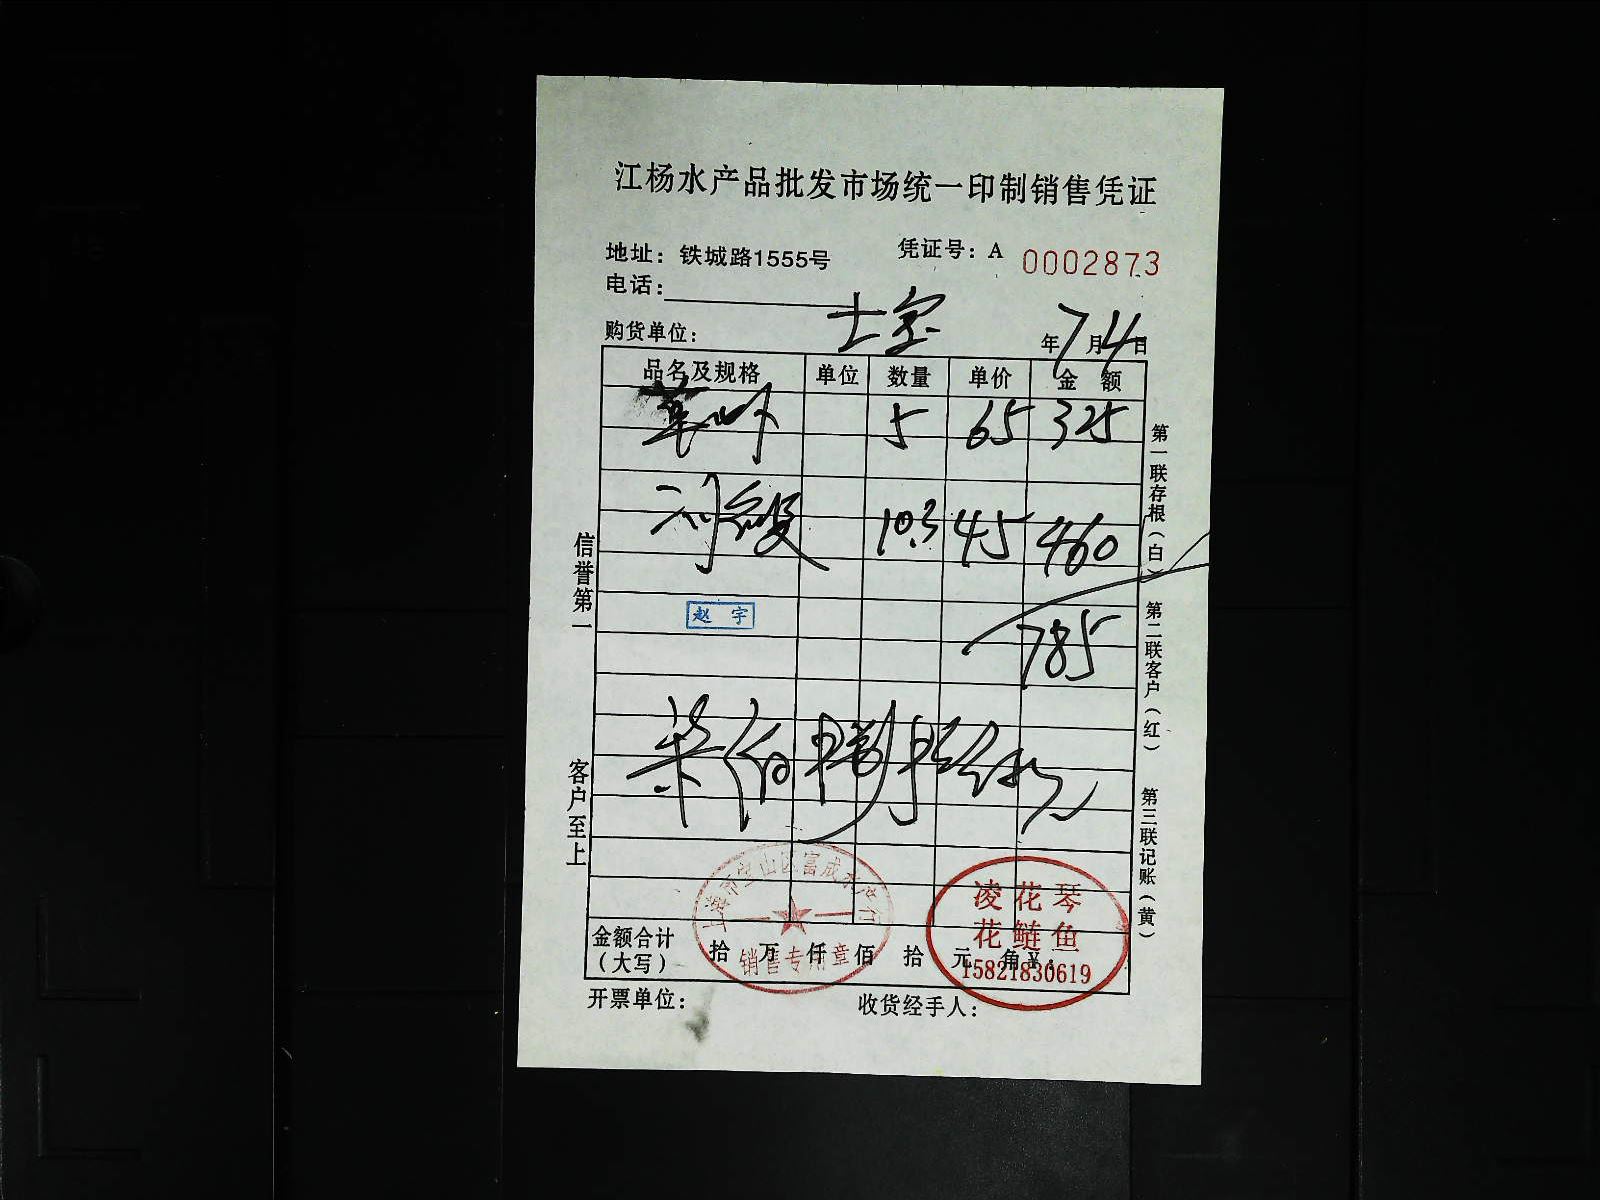 江杨水产品批发市场统一印制销售凭证
地址：铁城路1555号 凭证号：A 0002873
电话：
购货单位： 年7月4日
品名及规格 单位 数量 单价 金 额
5 65 325
10.3 45 460
赵 宇
785
柒佰捌拾伍元
上海市宝山区富成水产行
销售专用章
凌花琴
花鲢鱼
15821830619
金额合计
（大写） 拾 万 仟 佰 拾 元 角¥：
开票单位： 收货经手人：
信誉第一
客户至上
第一联存根（白）
第二联客户（红）
第三联记账（黄）